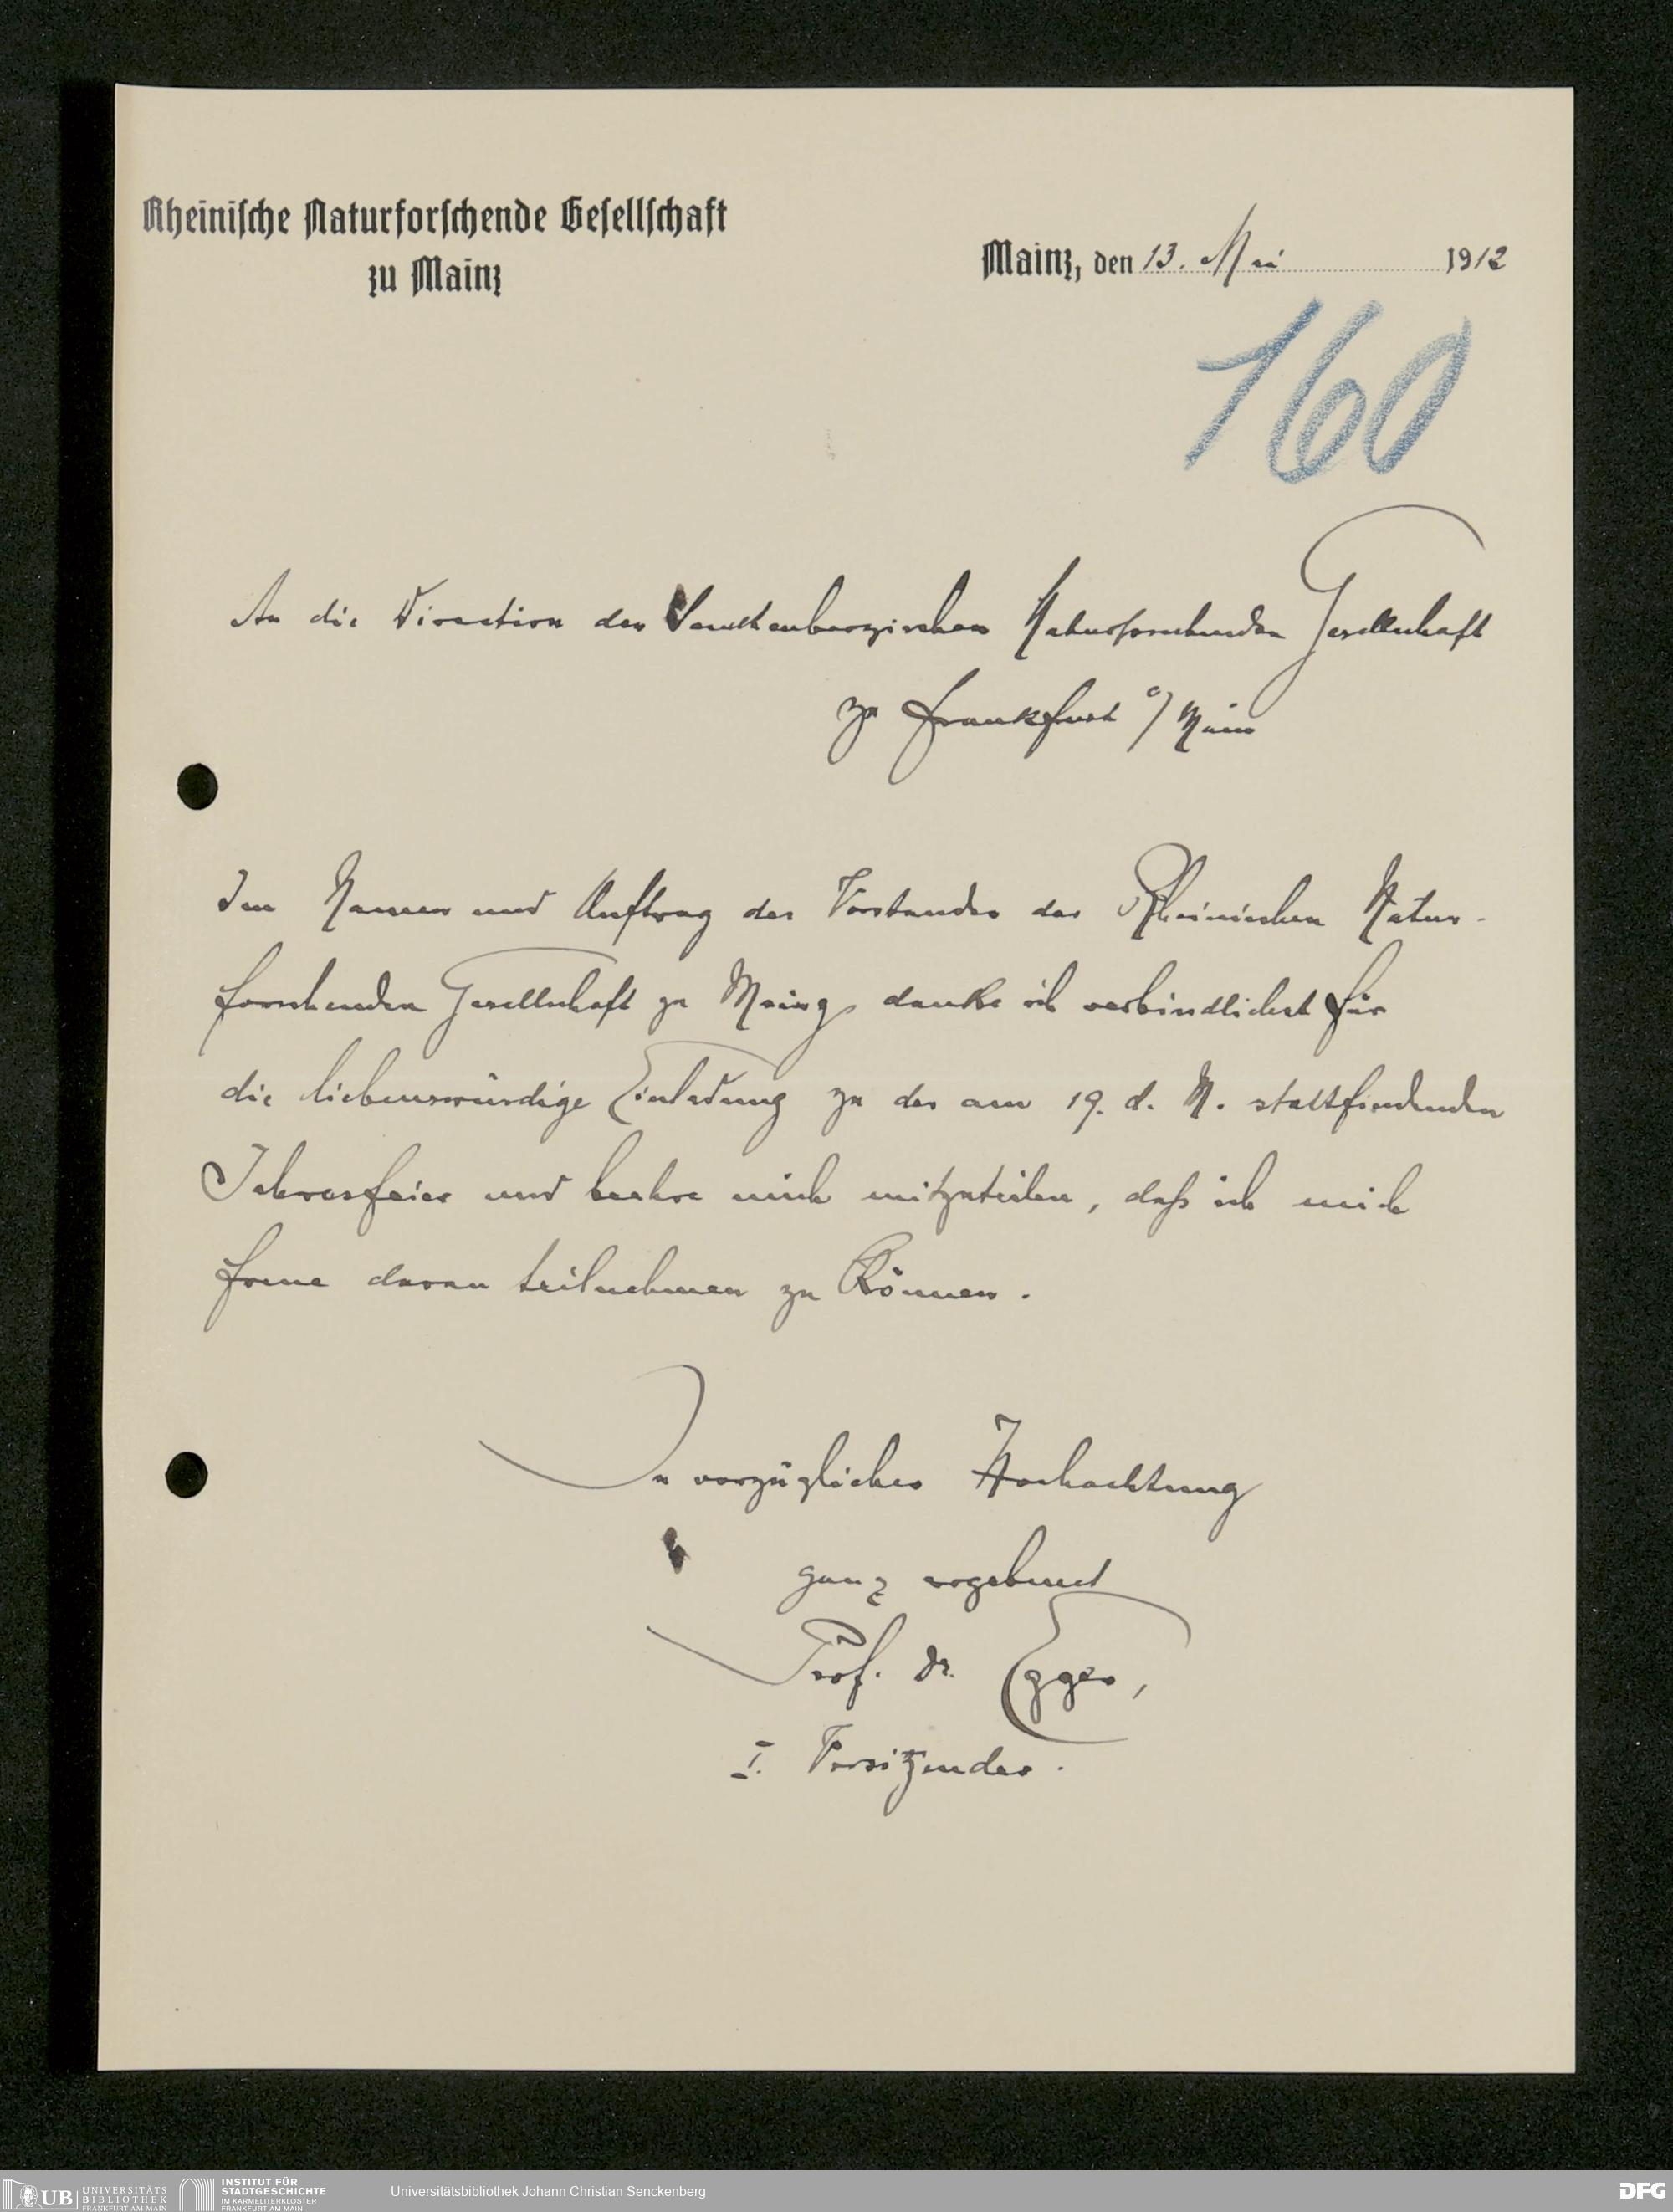 Rheinische Naturforschende Gesellschaft
zu Mainz
Mainz, den 13. Mai 1912
160
An die Direction der Senckenbergischen Naturforschenden Gesellschaft
zu Frankfurt a/ Main
Im Namen und Auftrag des Vorstandes der Rheinischen Natur-
forschenden Gesellschaft zu Mainz danke ich verbindlichst für
die liebenswürdige Einladung zu der am 19. d. M. stattfindenden
Jahresfeier und beehre mich mitzuteilen, daß ich mich
freue daran teilnehmen zu können.
In vorzüglicher Hochachtung
ganz ergebenst
Prof. Dr. Egger,
I. Vorsitzender.
UB UNIVERSITÄTS BIBLIOTHEK FRANKFURT AM MAIN
INSTITUT FÜR STADTGESCHICHTE IM KARMELITERKLOSTER FRANKFURT AM MAIN
Universitätsbibliothek Johann Christian Senckenberg
DFG